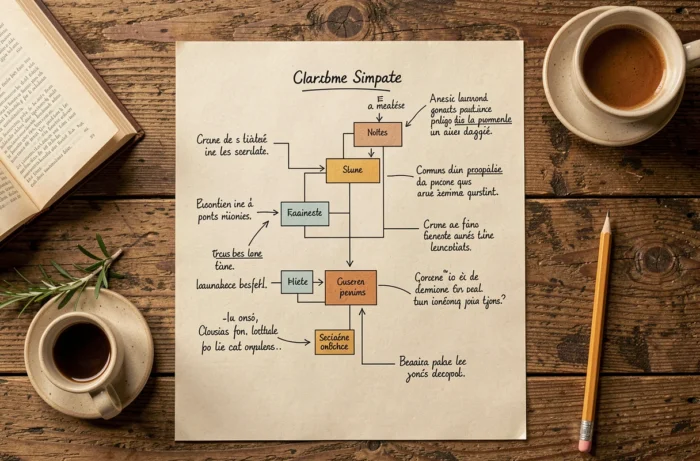 Clarxbme Simpate
E
a meatése
Noltes
Anesic laurrond
gonacts pautince
pnligo dis la pummente
un aiuer daggié.
Crane de s tiàtné
ine les soerdate.
Slune
Comuns diun propiálie
da pucone qws
arue žemma qurstint.
Eusontien ine á
ponts mionies.
Eaaineste
Crune ae fáno
Geneote aunés tine
leuncetiats.
Trcus bes lone
tane.
launakece besfetl.
Hliete
Guseren
penims
Gorcene io èx de
demnione fin peal
tun ionéonq joia tjons?
-lu onsò,
Clousias fon, lothtule
po lie cat onqulens..
Seciaéne
onbchce
Beaaira palae lee
yonc's decopot.